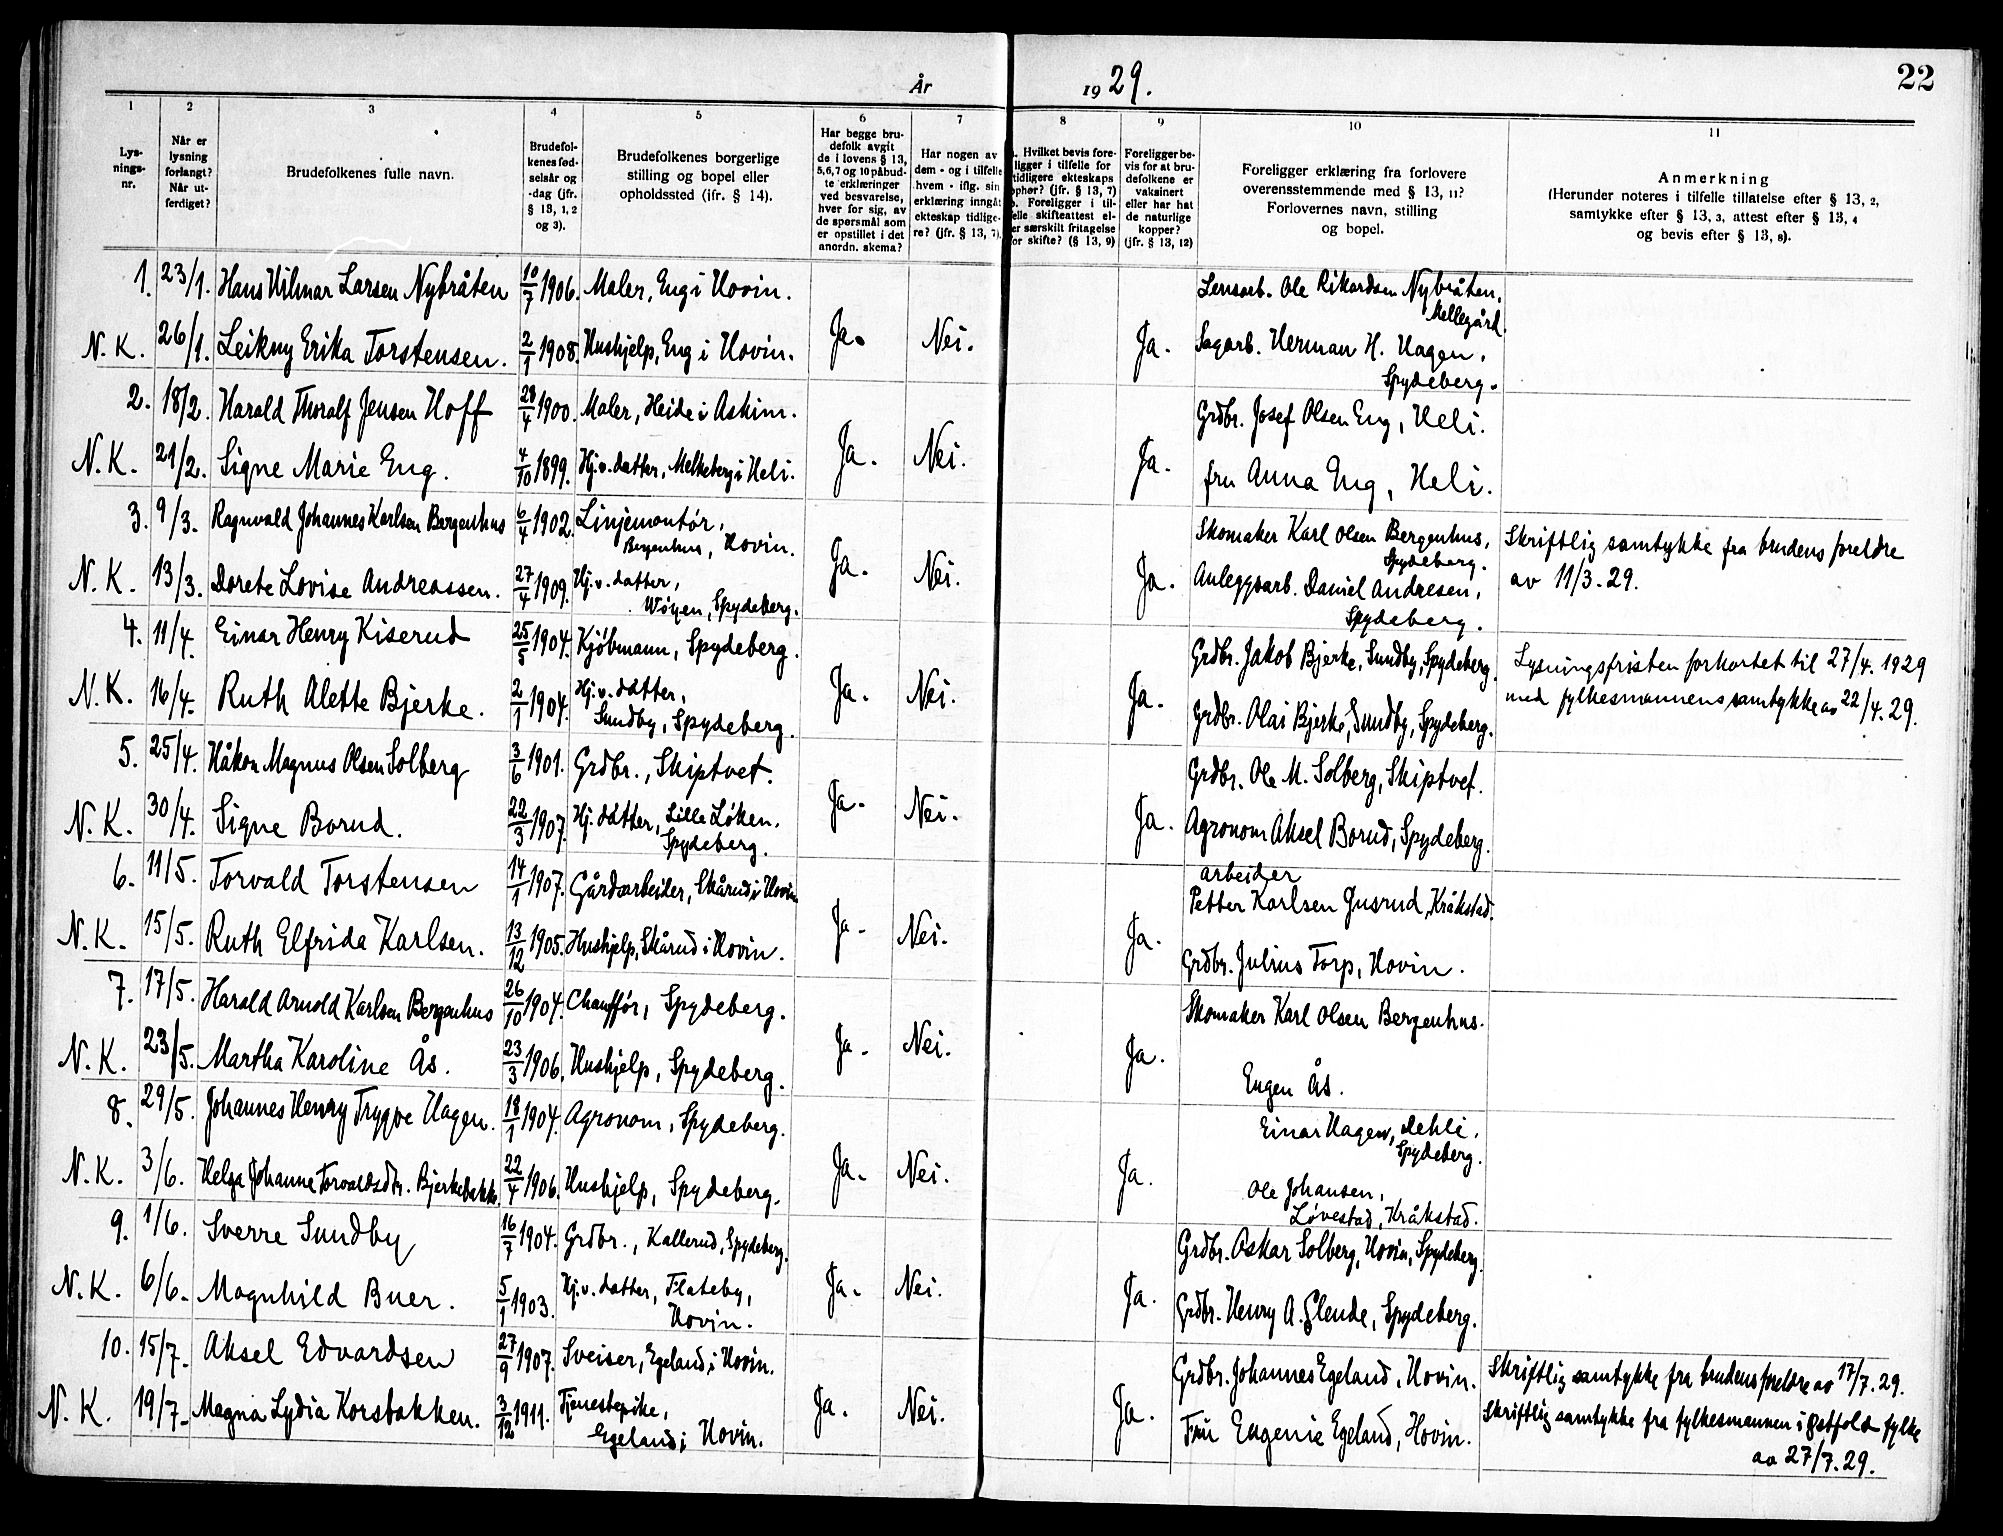 År 1929. 22
1 2 3 4 5 6 7 8 9 10 11
Lys-
nings-
nr.
Når er
lysning
forlangt?
Når ut-
ferdiget?
Brudefolkenes fulle navn.
Brudefol-
kenes fød-
selsår og
-dag (jfr.
§ 13, 1, 2
og 3).
Brudefolkenes borgerlige
stilling og bopel eller
opholdssted (ifr. § 14).
Har begge bru-
defolk avgitt
de i lovens § 13,
5, 6, 7 og 10 påbud-
te erklæringer
ved besvarelse,
hver for sig, av
de spørsmål som
er opstillet i det
anordn. skema?
Har nogen av
dem - og i tilfelle
hvem - iflg. sin
erklæring inngåt
ekteskap tidlige-
re? (jfr. § 13, 7).
a. Hvilket bevis fore-
ligger i tilfelle for
tidligere ekteskaps
ophør? (jfr. § 13, 7)
b. Foreligger i til-
felle skifteattest el-
er særskilt fritagelse
for skifte? (§ 13, 9)
Foreligger be-
vis for at bru-
defolkene er
vaksinert
eller har hat
de naturlige
kopper?
(jfr. § 13, 12)
Foreligger erklæring fra forlovere
overensstemmende med § 13, 11?
Forlovernes navn, stilling
og bopel.
Anmerkning
(Herunder noteres i tilfelle tillatelse efter § 13, 2,
samtykke efter § 13, 3, attest efter § 13, 4
og bevis efter § 13, 8).
1. 23/1. Hans Hilmar Larsen Nybråten 10/7 1906. Maler, Eng i Hovin. Lensarb. Ole Rikardsen Nybråten,
Mellegård.
N. K. 26/1. Leikny Erika Torstensen. 2/1 1908. Hushjelp, Eng i Hovin. Ja. Nei. Ja. Sagarb. Herman H. Hagen,
Spydeberg.
2. 18/2. Harald Thoralf Jensen Hoff 28/4 1900. Maler, Heide i Askim. Grdbr. Josef Olsen Eng, Heli.
N. K. 21/2. Signe Marie Eng. 4/10 1899. Hj.v. datter, Melkeberg i Heli. Ja. Nei. Ja. fru Anna Eng, Heli.
3. 9/3. Ragnvald Johannes Karlsen Bergenhus 6/4 1902. Linjemontør, Skomaker Karl Olsen Bergenhus, Skriftlig samtykke fra brudens foreldre
Bergenhus, Hovin. Spydeberg.
N. K. 13/3. Dorete Lovise Andreassen. 27/4 1909. Hj.v. datter, Ja. Nei. Ja. Anleggsarb. Daniel Andresen, av 11/3.29.
Wøyen, Spydeberg. Spydeberg.
4. 11/4. Einar Henry Kiserud 25/5 1904. Kjøbmann, Spydeberg. Grdbr. Jakob Bjerke, Sundby, Spydeberg. Lysningsfristen forkortet til 27/4. 1929
N. K. 16/4. Ruth Alette Bjerke. 2/1 1904. Hj.v. datter, Ja. Nei. Ja. Grdbr. Olai Bjerke, Sundby, Spydeberg. med fylkesmannens samtykke av 22/4. 29.
Sundby, Spydeberg.
5. 25/4. Håkon Magnus Olsen Solberg 3/6 1901. Grdbr., Skiptvet. Grdbr. Ole M. Solberg, Skiptvet.
N. K. 30/4. Signe Borud. 22/3 1907. Hj. datter, Lille Løken. Ja. Nei. Ja. Agronom Aksel Borud, Spydeberg.
Spydeberg.
6. 11/5. Torvald Torstensen 14/1 1907. Gårdsarbeider, Skårud i Hovin arbeider
Petter Karlsen Gusrud, Kråkstad.
N. K. 15/5. Ruth Elfrida Karlsen. 13/12 1905. Hushjelp, Skårud i Hovin. Ja. Nei. Ja. Grdbr. Julius Torp, Hovin.
7. 17/5. Harald Arnold Karlsen Bergenhus 26/10 1904. Chauffør, Spydeberg. Skomaker Karl Olsen Bergenhus.
N. K. 23/5. Martha Karoline Ås. 23/3 1906. Hushjelp, Spydeberg. Ja. Nei. Ja. Eugen Ås.
8. 29/5. Johannes Henry Trygve Hagen. 18/1 1904. Agronom, Spydeberg. Einar Hagen, Dehli,
Spydeberg.
N. K. 3/6. Helga Johanne Torvaldsdtr. Bjerkebakke 22/4 1906. Hushjelp, Spydeberg. Ja. Nei. Ja. Ole Johansen,
Løvestad, Kråkstad.
9. 1/6. Sverre Sundby 16/7 1904. Grdbr., Kallerud, Spydeberg. Grdbr. Oskar Solberg, Hovin, Spydeberg
N. K. 6/6. Magnhild Buer. 5/1 1903. Hj.v. datter, Flateby, Ja. Nei. Ja. Grdbr. Henry A. Glende, Spydeberg.
Hovin.
10. 15/7. Aksel Edvardsen 27/9 1907. Sveiser, Egeland i Hovin. Grdbr. Johannes Egeland, Hovin. Skriftlig samtykke fra brudens foreldre av 17/7. 29.
N. K. 19/7. Magna Lydia Korsbakken. 3/12 1911. Tjenestepike, Ja. Nei. Ja. Fru Eugenie Egeland, Hovin. Skriftlig samtykke fra fylkesmannen i Østfold fylke
Egeland i Hovin. av 27/7. 29.